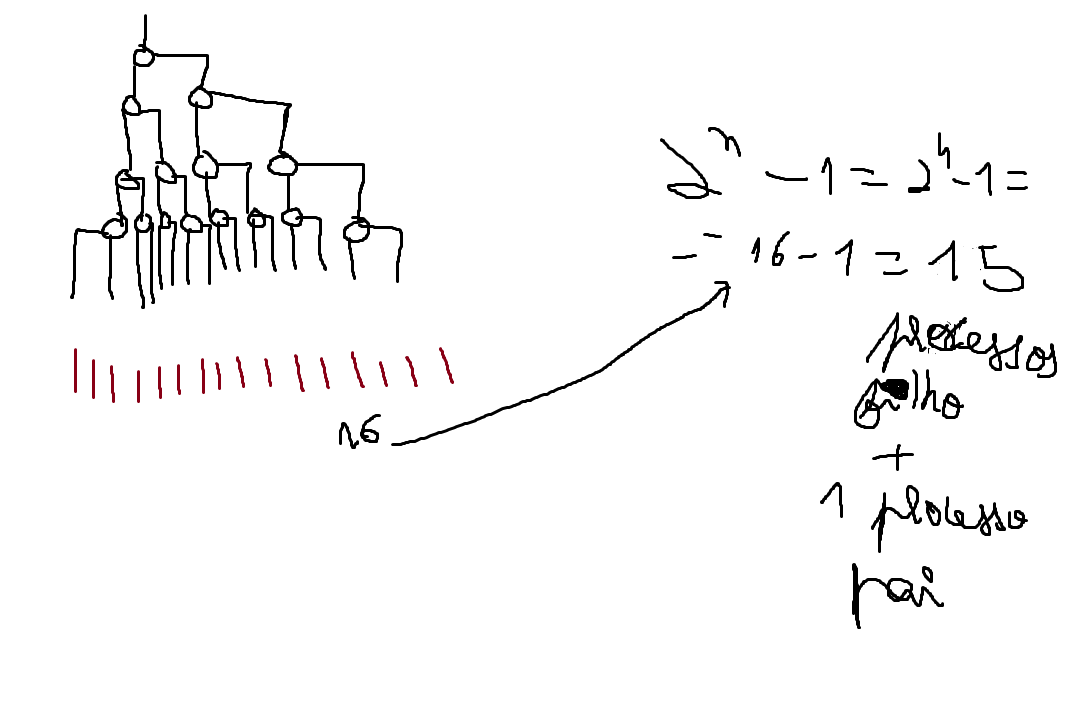 2ⁿ - 1 = 2⁴ - 1 =
= 16 - 1 = 15
processos
filho
+
1 processo
pai
16